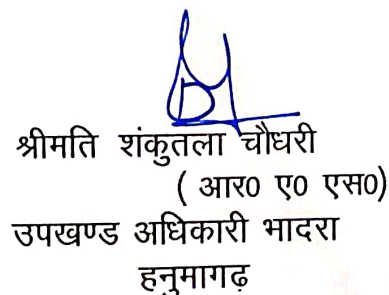 श्रीमति शंकुतला चौधरी
( आर0 ए0 एस0)
उपखण्ड अधिकारी भादरा
हनुमागढ़